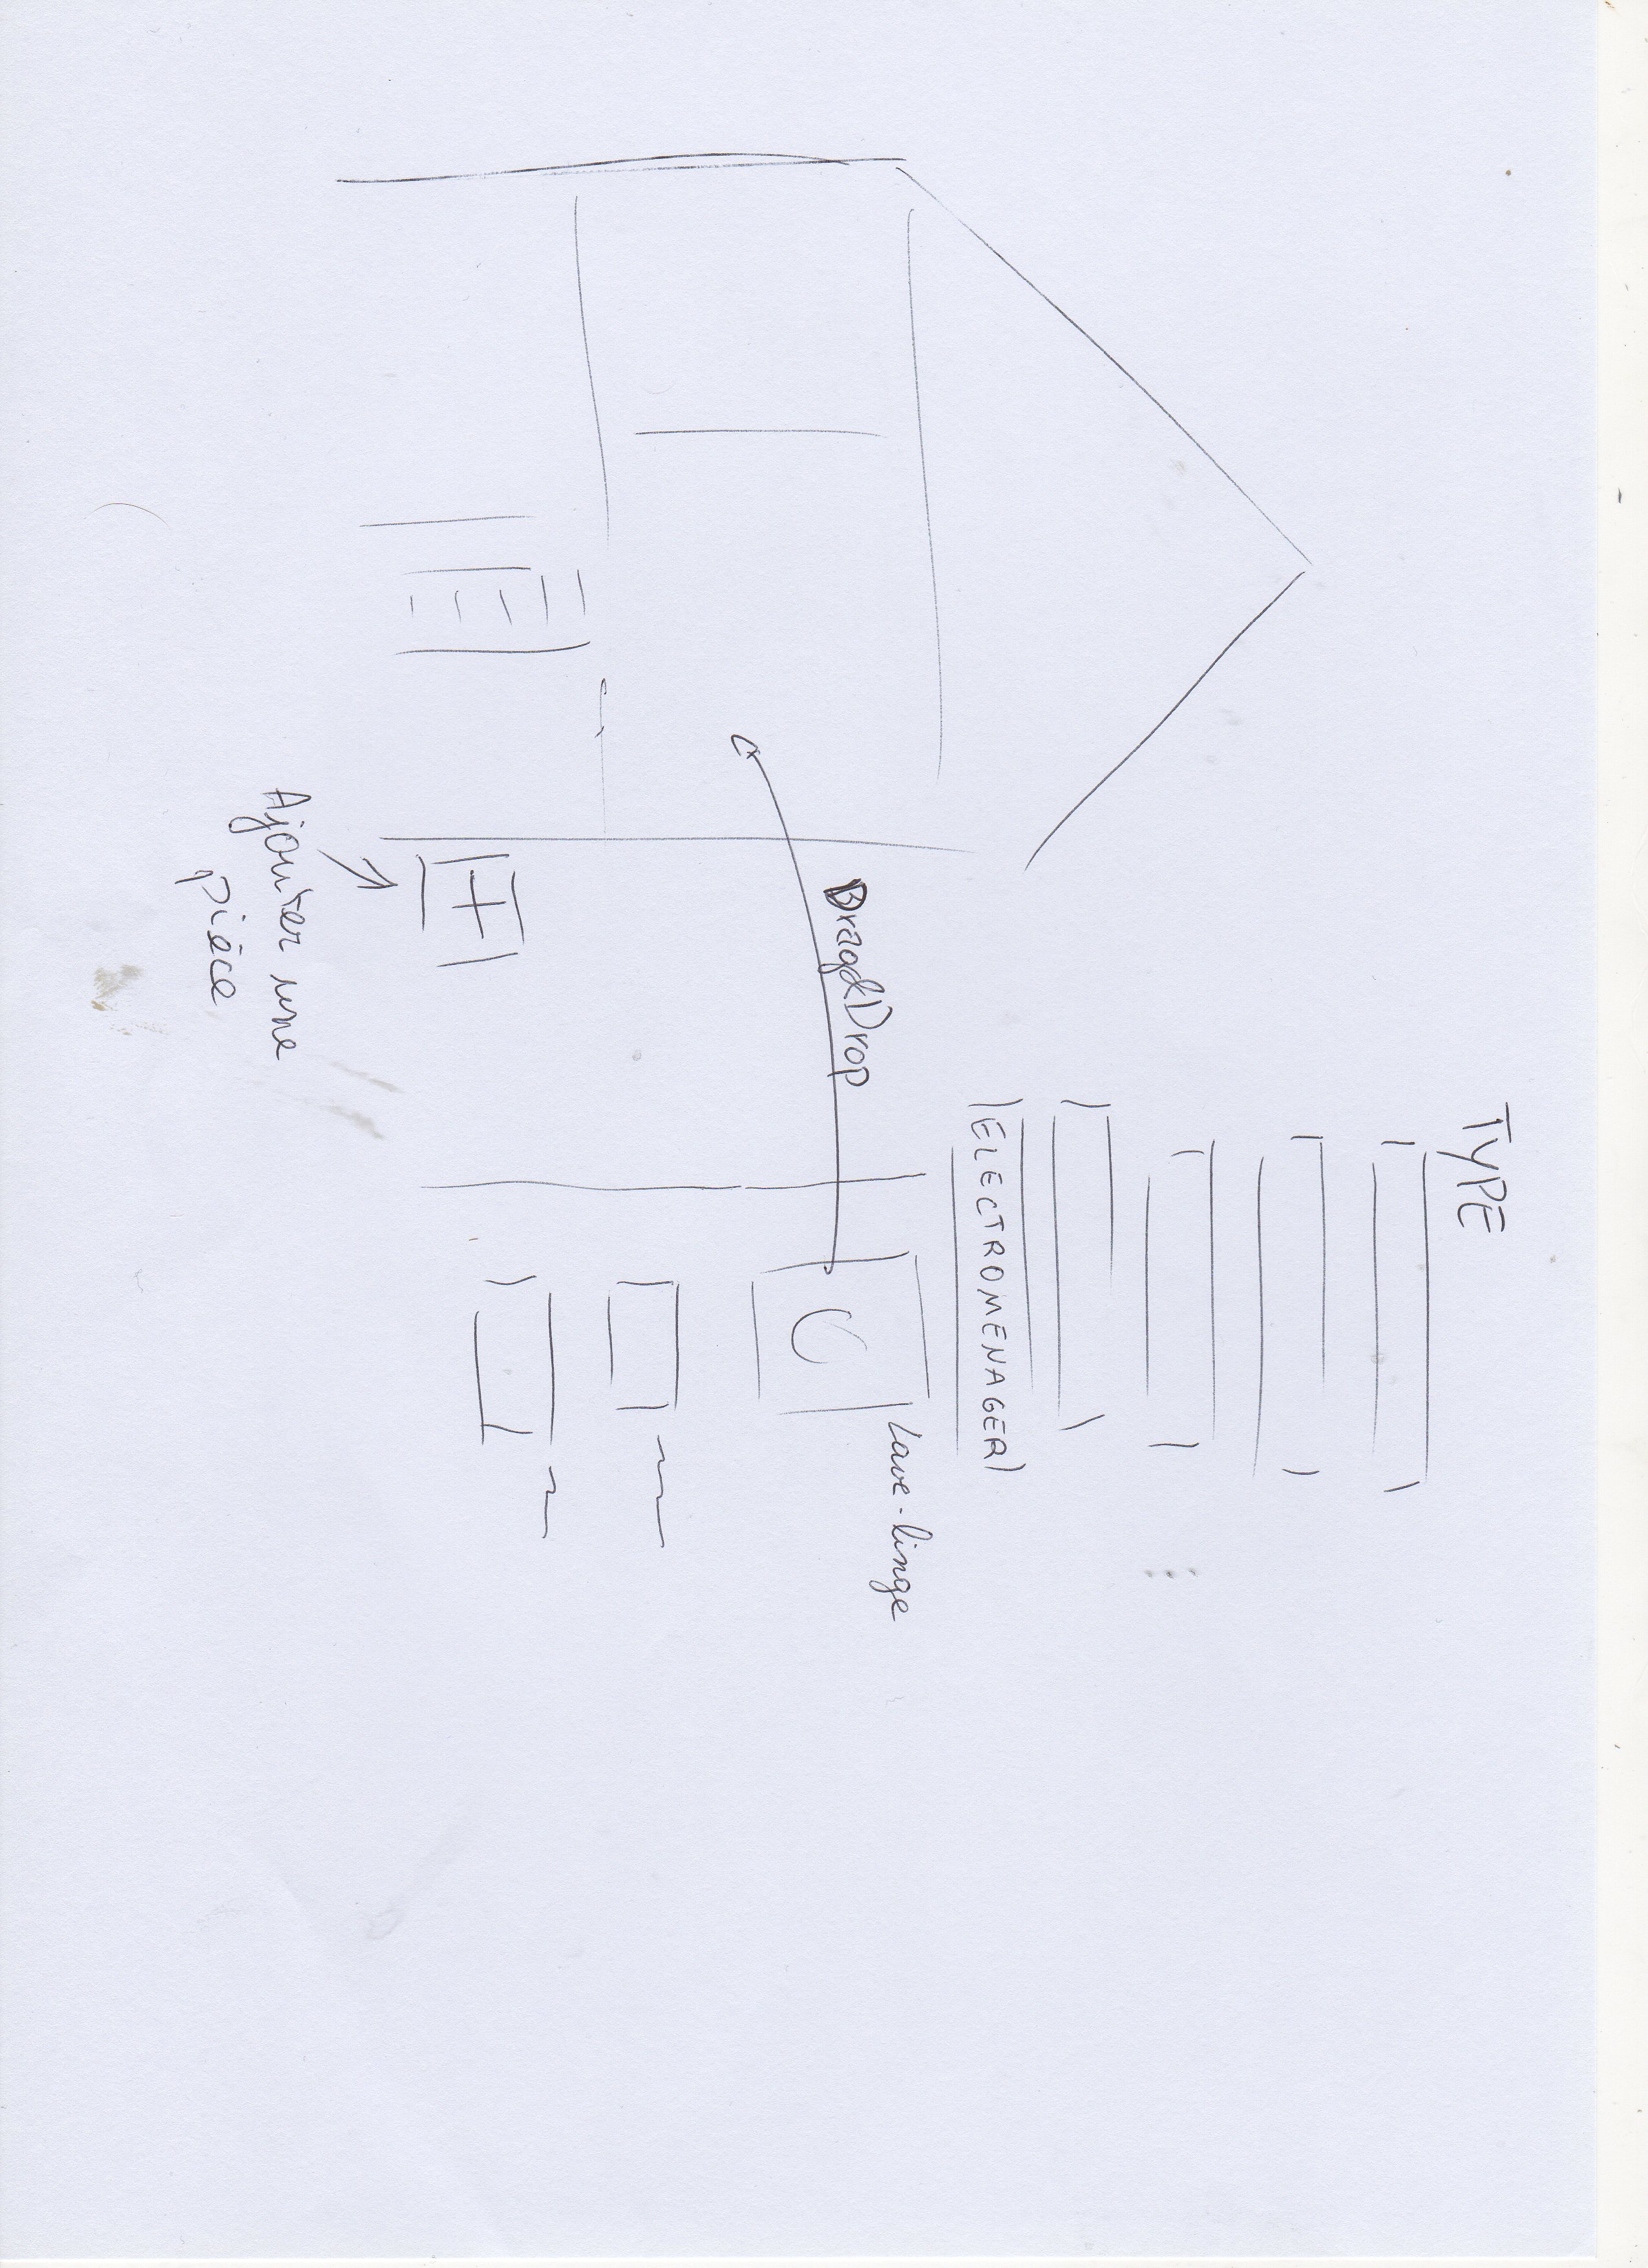 TYPE
ELECTROMENAGER
Lave-linge
Drag&Drop
+
Ajouter une
pièce